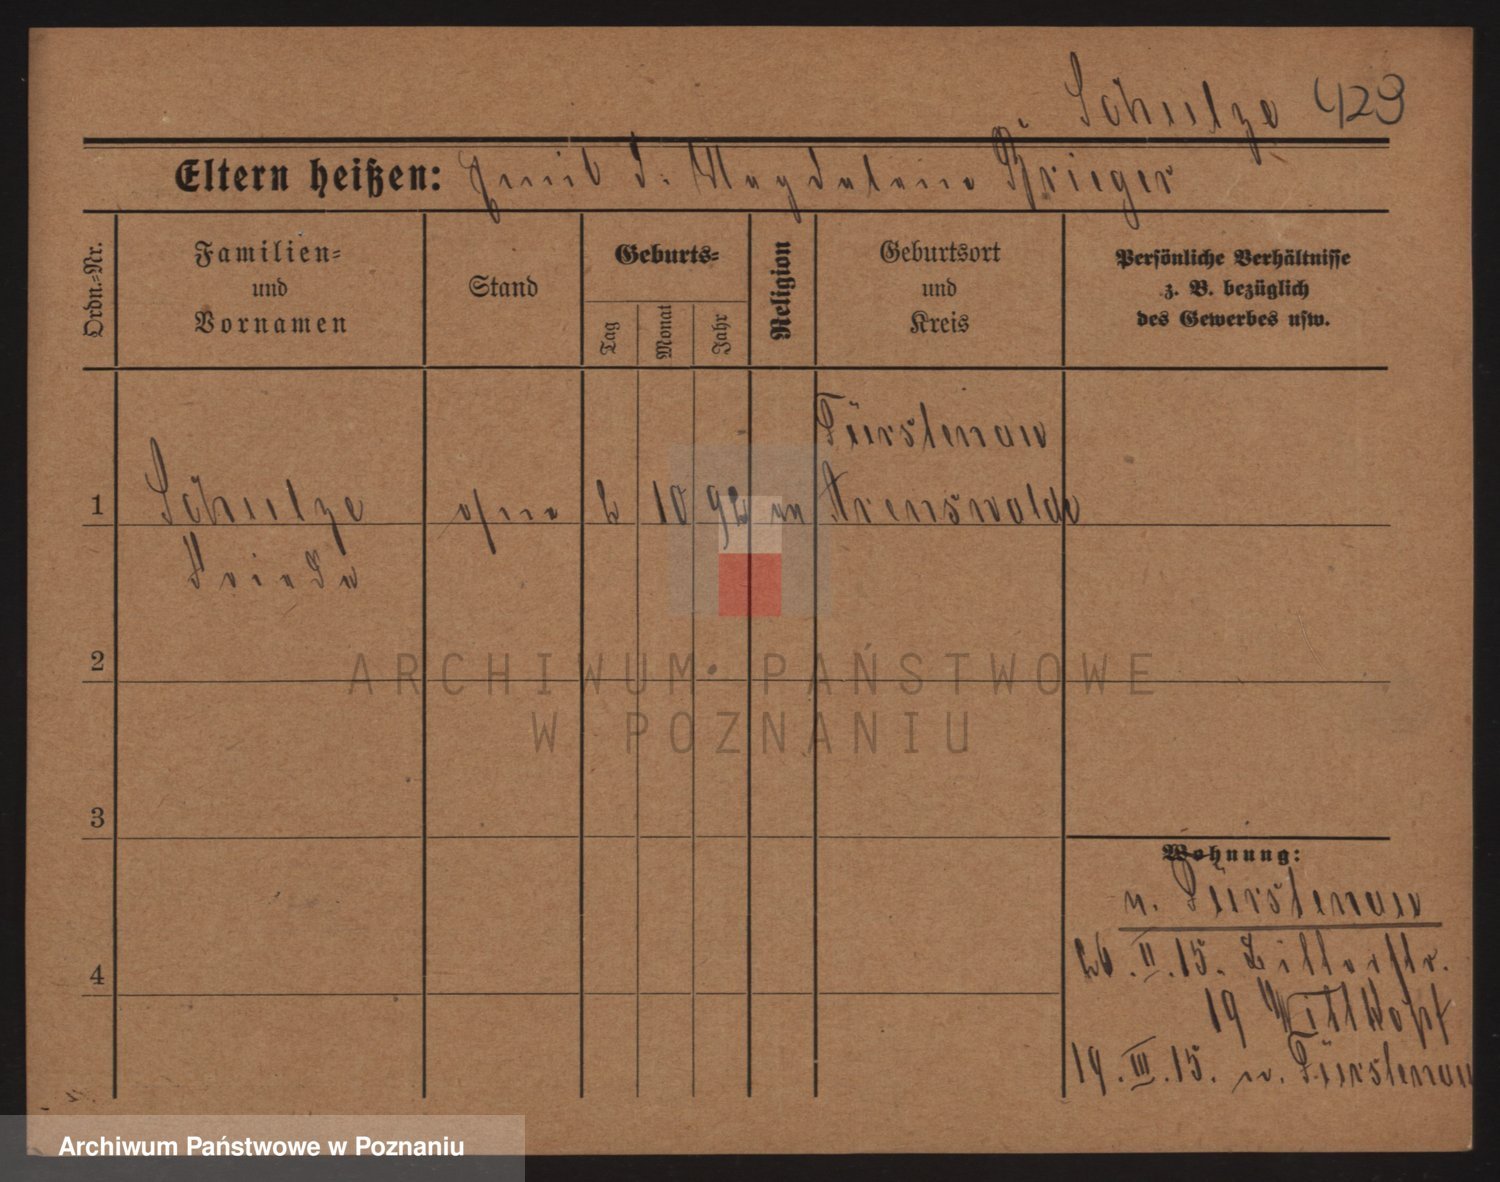 Schulze 423
Eltern heißen: Emil u. Magdalena Krieger
Ordn.-Nr.
Familien-
und
Vornamen
Stand
Geburts-
Tag
Monat
Jahr
Religion
Geburtsort
und
Kreis
Persönliche Verhältnisse
z. B. bezüglich
des Gewerbes usw.
Fürstenau
1 Schulze ohne 2 10 92 Arenswalde
Frieda
2
3
4
Wohnung:
n. Fürstenau
26. II. 15.
19
19. III. 15. n. Fürstenau
ARCHIWUM PAŃSTWOWE
W POZNANIU
Archiwum Państwowe w Poznaniu